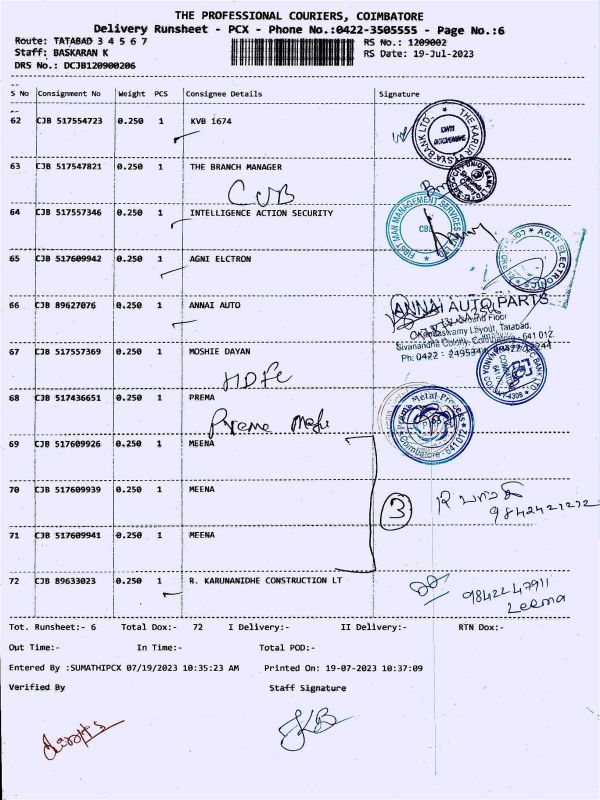 THE PROFESSIONAL COURIERS, COIMBATORE
Delivery Runsheet - PCX - Phone No.:0422-3505555 - Page No.:6
Route: TATABAD 3 4 5 6 7
RS No.: 1209002
Staff: BASKARAN K
RS Date: 19-Jul-2023
DRS No.: DCJB120900206
S No Consignment No Weight PCS Consignee Details Signature
62 CJB 517554723 0.250 1 KVB 1674
63 CJB 517547821 0.250 1 THE BRANCH MANAGER
CUB
64 CJB 517557346 0.250 1 INTELLIGENCE ACTION SECURITY
FIRST MAN MANAGEMENT SERVICES
CBE
65 CJB 517609942 0.250 1 AGNI ELCTRON
AGNI ELECTRONICS
66 CJB 89627076 0.250 1 ANNAI AUTO
ANNAI AUTO PARTS
Ground Floor
Layout, Tatabad,
Sivanandha Colony, Coimbatore - 641 012.
Ph: 0422 :
67 CJB 517557369 0.250 1 MOSHIE DAYAN
HDFC
68 CJB 517436651 0.250 1 PREMA
Prema Metal Process
Coimbatore - 641 012
Prema
69 CJB 517609926 0.250 1 MEENA
70 CJB 517609939 0.250 1 MEENA
3
71 CJB 517609941 0.250 1 MEENA
72 CJB 89633023 0.250 1 R. KARUNANIDHE CONSTRUCTION LT
9842247911
Leema
Tot. Runsheet:- 6 Total Dox:- 72 I Delivery:- II Delivery:- RTN Dox:-
Out Time:- In Time:- Total POD:-
Entered By :SUMATHIPCX 07/19/2023 10:35:23 AM Printed On: 19-07-2023 10:37:09
Verified By Staff Signature